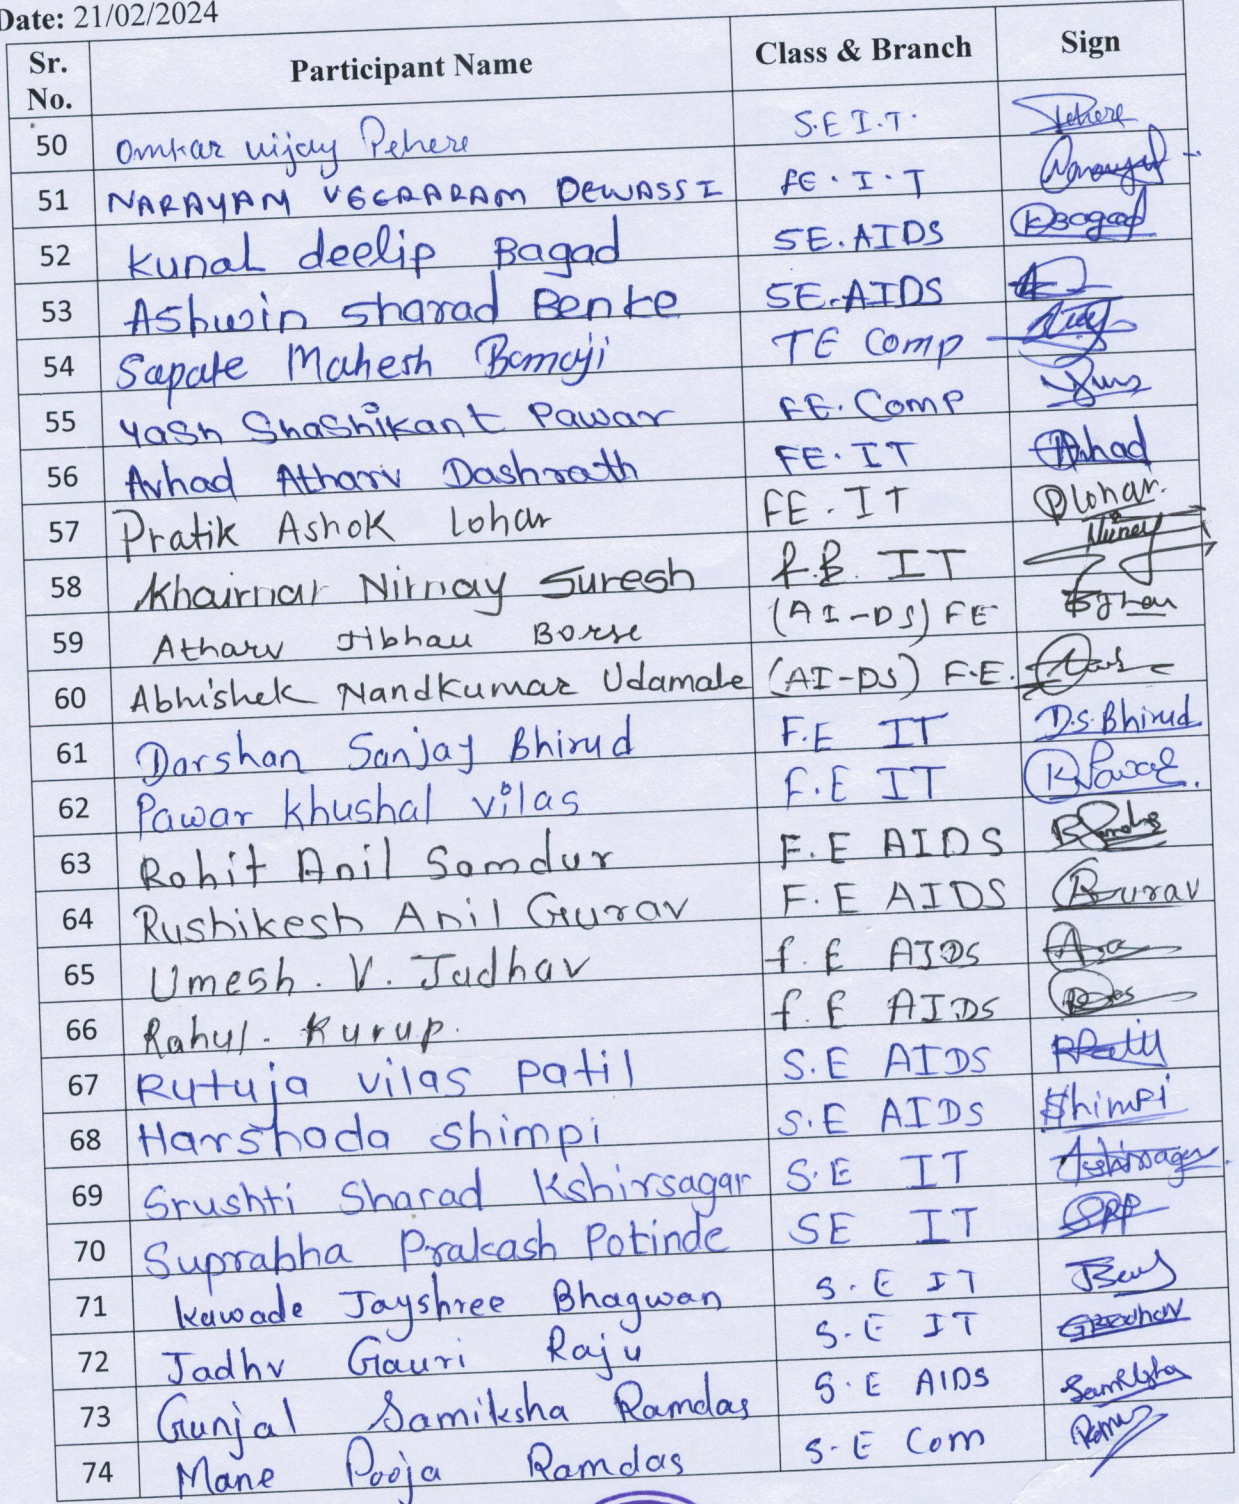 Date: 21/02/2024
Sr. No. Participant Name Class & Branch Sign
50 Omkar vijay Pehere S.E I.T. Pehere
51 NARAYAM VEERARAM DEWASSI FE.I.T
52 Kunal deelip Bagad SE.AIDS KBagad
53 Ashwin Sharad Benke SE.AIDS
54 Sapate Mahesh Bamaji TE Comp
55 Yash Shashikant Pawar FE.Comp
56 Avhad Atharv Dashrath FE.IT Avhad
57 Pratik Ashok Lohar FE.IT PLohar.
58 Khairnar Nirnay Suresh F.E. IT
59 Atharv Jibhau Borse (AI-DS) FE
60 Abhishek Nandkumar Udamale (AI-DS) F.E.
61 Darshan Sanjay Bhirud F.E IT D.S.Bhirud
62 Pawar Khushal Vilas F.E IT K.Pawar
63 Rohit Anil Somdur F.E AIDS
64 Rushikesh Anil Gurav F.E AIDS Gurav
65 Umesh. V. Jadhav f.E AIDS
66 Rahul. Kurup. f.E AIDS
67 Rutuja Vilas Patil S.E AIDS RPatil
68 Harshada Shimpi S.E AIDS Shimpi
69 Srushti Sharad Kshirsagar S.E IT Kshirsagar
70 Suprabha Prakash Potinde SE IT SPP
71 Kawade Jayshree Bhagwan S.E IT
72 Jadhv Gauri Raju S.E IT
73 Gunjal Samiksha Ramdas S.E AIDS Samiksha
74 Mane Pooja Ramdas S.E Com